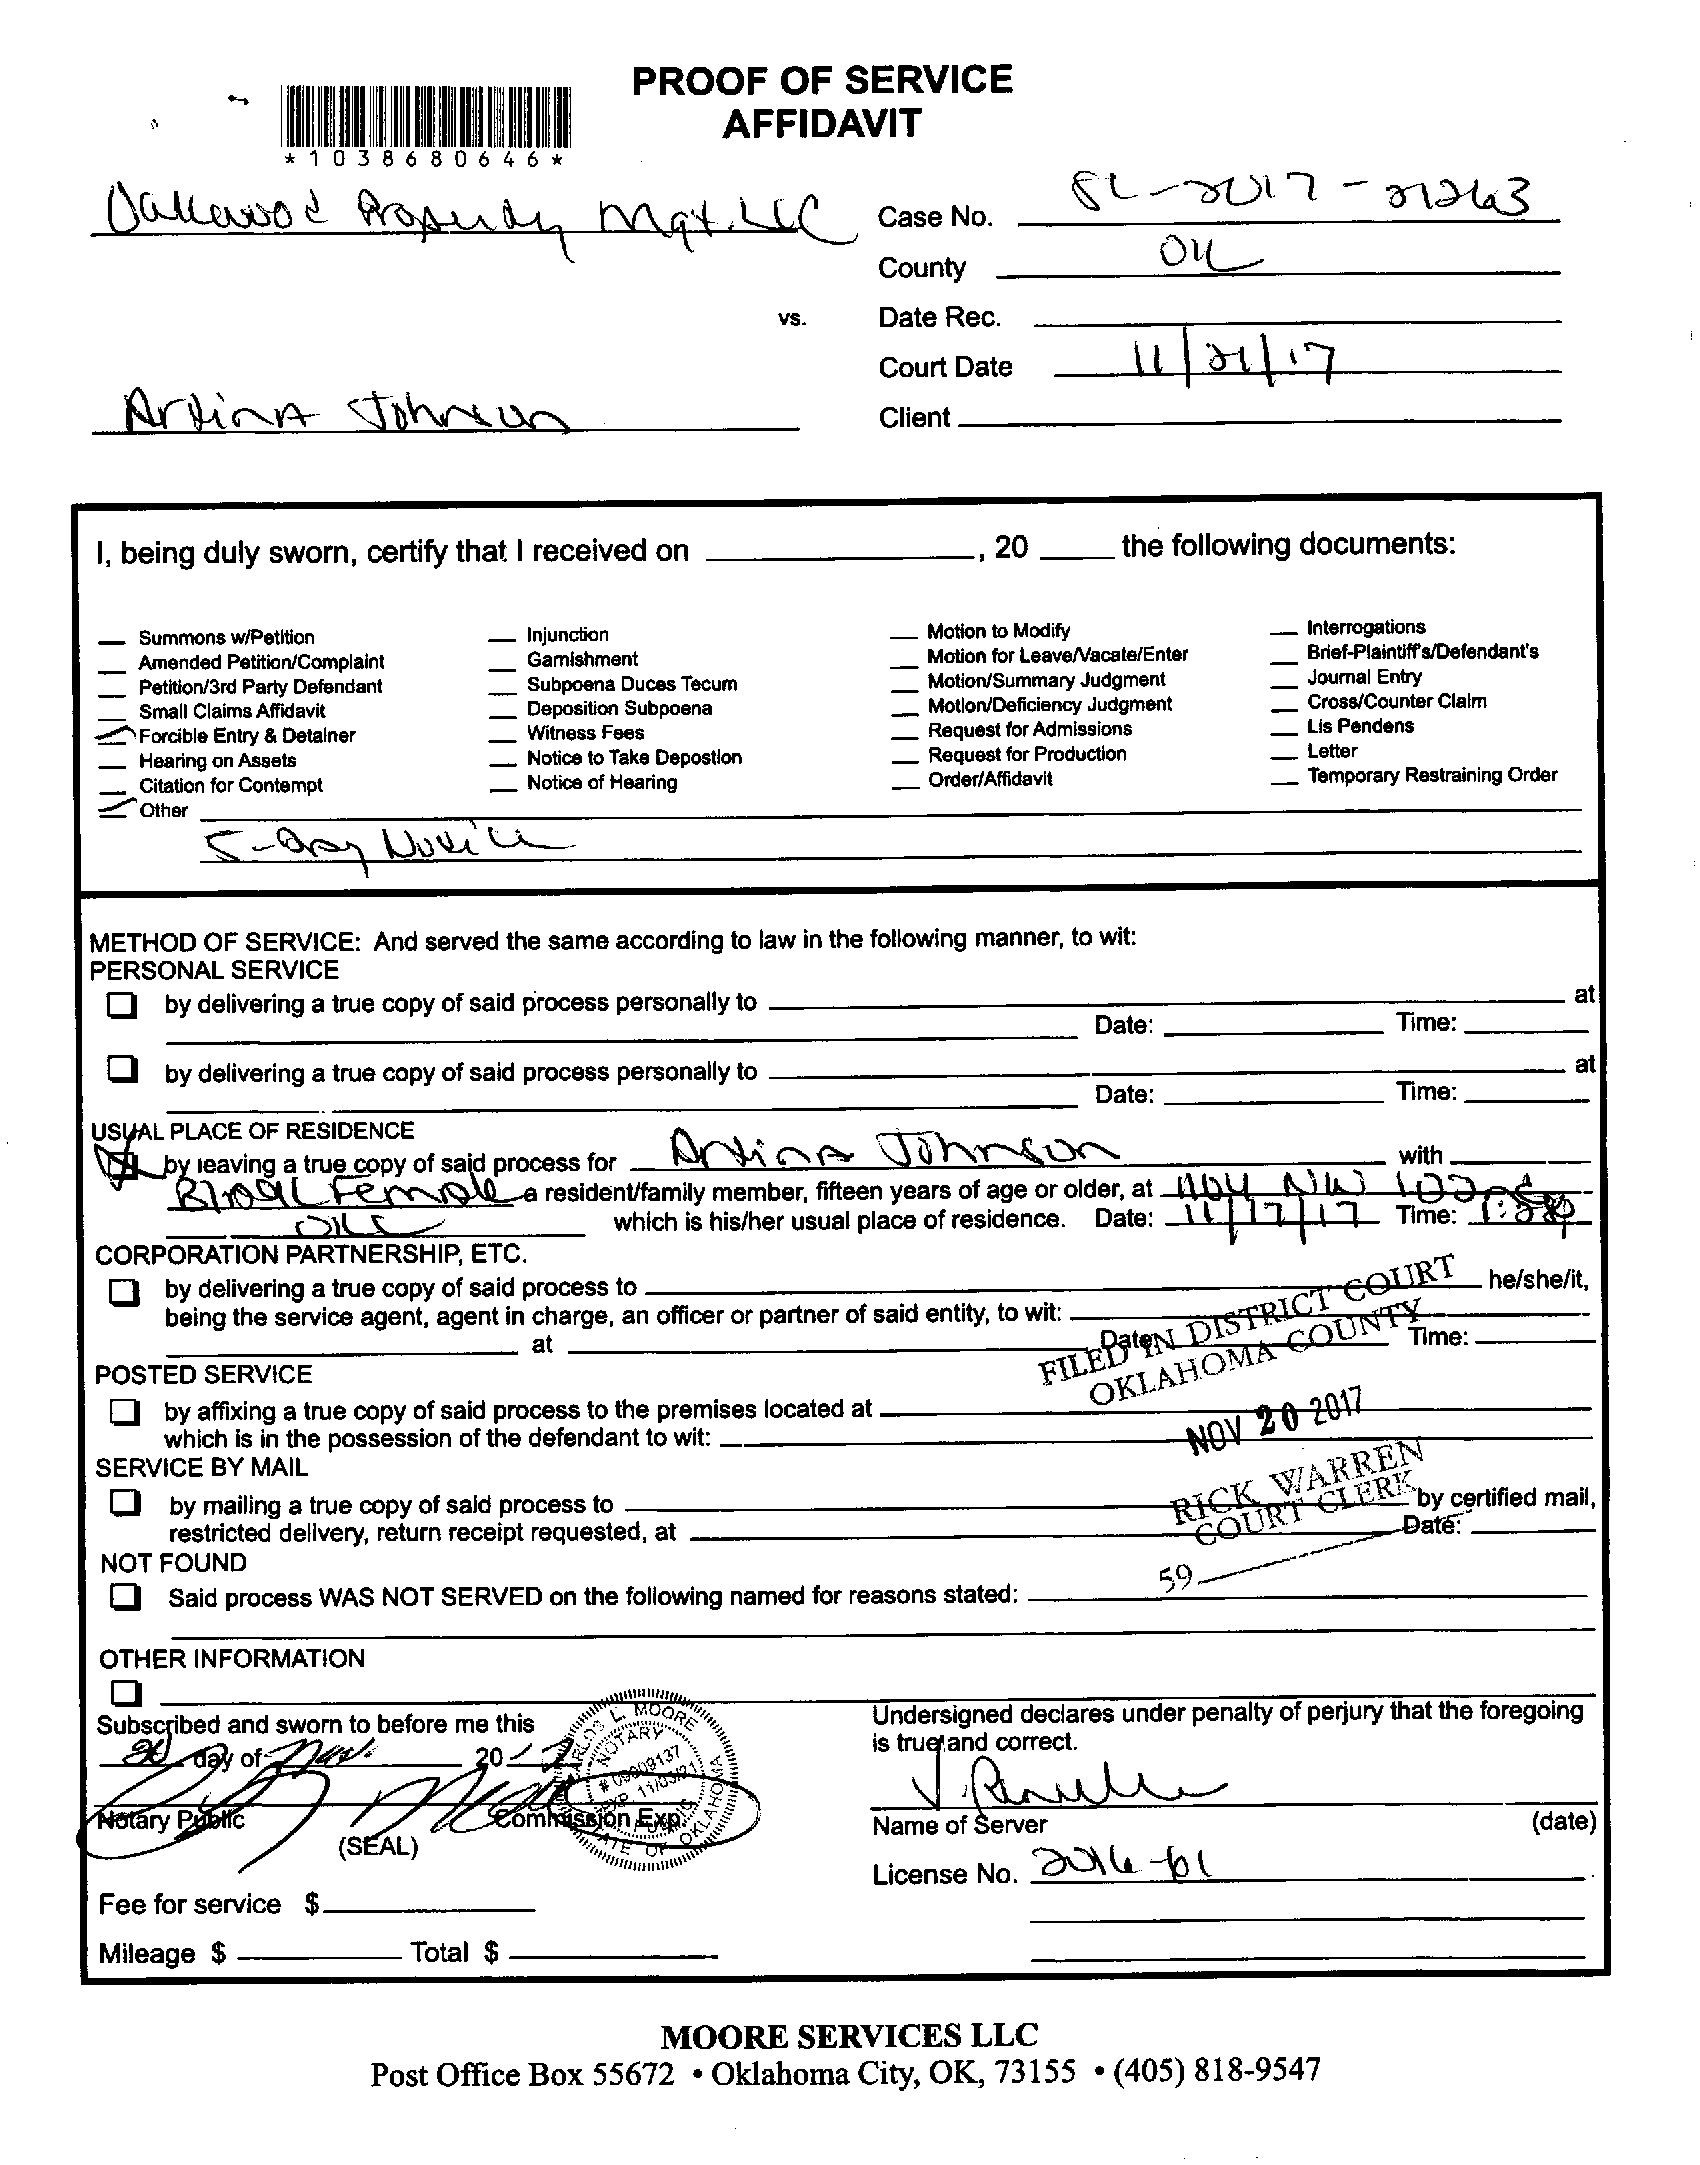 PROOF OF SERVICE
AFFIDAVIT
*1038680646*
Oakewood Property Mgt. LLC
Case No. SC-2017-21263
County OK
vs.
Date Rec.
Court Date 11/21/17
Johnson
Client
I, being duly sworn, certify that I received on ____, 20 ____ the following documents:
Summons w/Petition
Amended Petition/Complaint
Petition/3rd Party Defendant
Small Claims Affidavit
Forcible Entry & Detainer
Hearing on Assets
Citation for Contempt
Other
Injunction
Garnishment
Subpoena Duces Tecum
Deposition Subpoena
Witness Fees
Notice to Take Depostion
Notice of Hearing
Motion to Modify
Motion for Leave/Vacate/Enter
Motion/Summary Judgment
Motion/Deficiency Judgment
Request for Admissions
Request for Production
Order/Affidavit
Interrogations
Brief-Plaintiff's/Defendant's
Journal Entry
Cross/Counter Claim
Lis Pendens
Letter
Temporary Restraining Order
5-Day Notice
METHOD OF SERVICE: And served the same according to law in the following manner, to wit:
PERSONAL SERVICE
by delivering a true copy of said process personally to ____ at
Date: ____ Time:
by delivering a true copy of said process personally to ____ at
Date: ____ Time:
USUAL PLACE OF RESIDENCE
by leaving a true copy of said process for Johnson with
Female a resident/family member, fifteen years of age or older, at NW
OKC which is his/her usual place of residence. Date: 11/17/17 Time:
CORPORATION PARTNERSHIP, ETC.
by delivering a true copy of said process to ____ he/she/it,
being the service agent, agent in charge, an officer or partner of said entity, to wit:
at ____ Date: ____ Time:
FILED IN DISTRICT COURT
OKLAHOMA COUNTY
POSTED SERVICE
by affixing a true copy of said process to the premises located at
which is in the possession of the defendant to wit:
NOV 20 2017
SERVICE BY MAIL
by mailing a true copy of said process to ____ by certified mail,
restricted delivery, return receipt requested, at ____ Date:
RICK WARREN
COURT CLERK
59
NOT FOUND
Said process WAS NOT SERVED on the following named for reasons stated:
OTHER INFORMATION
Subscribed and sworn to before me this
20 day of Nov. 2017
Notary Public
(SEAL)
Commission Exp.
CARLOS L. MOORE
NOTARY
# 09009137
EXP. 11/03/21
PUBLIC
STATE OF OKLAHOMA
Undersigned declares under penalty of perjury that the foregoing
is true and correct.
Name of Server (date)
License No. 2016-61
Fee for service $
Mileage $ ____ Total $
MOORE SERVICES LLC
Post Office Box 55672 • Oklahoma City, OK, 73155 • (405) 818-9547